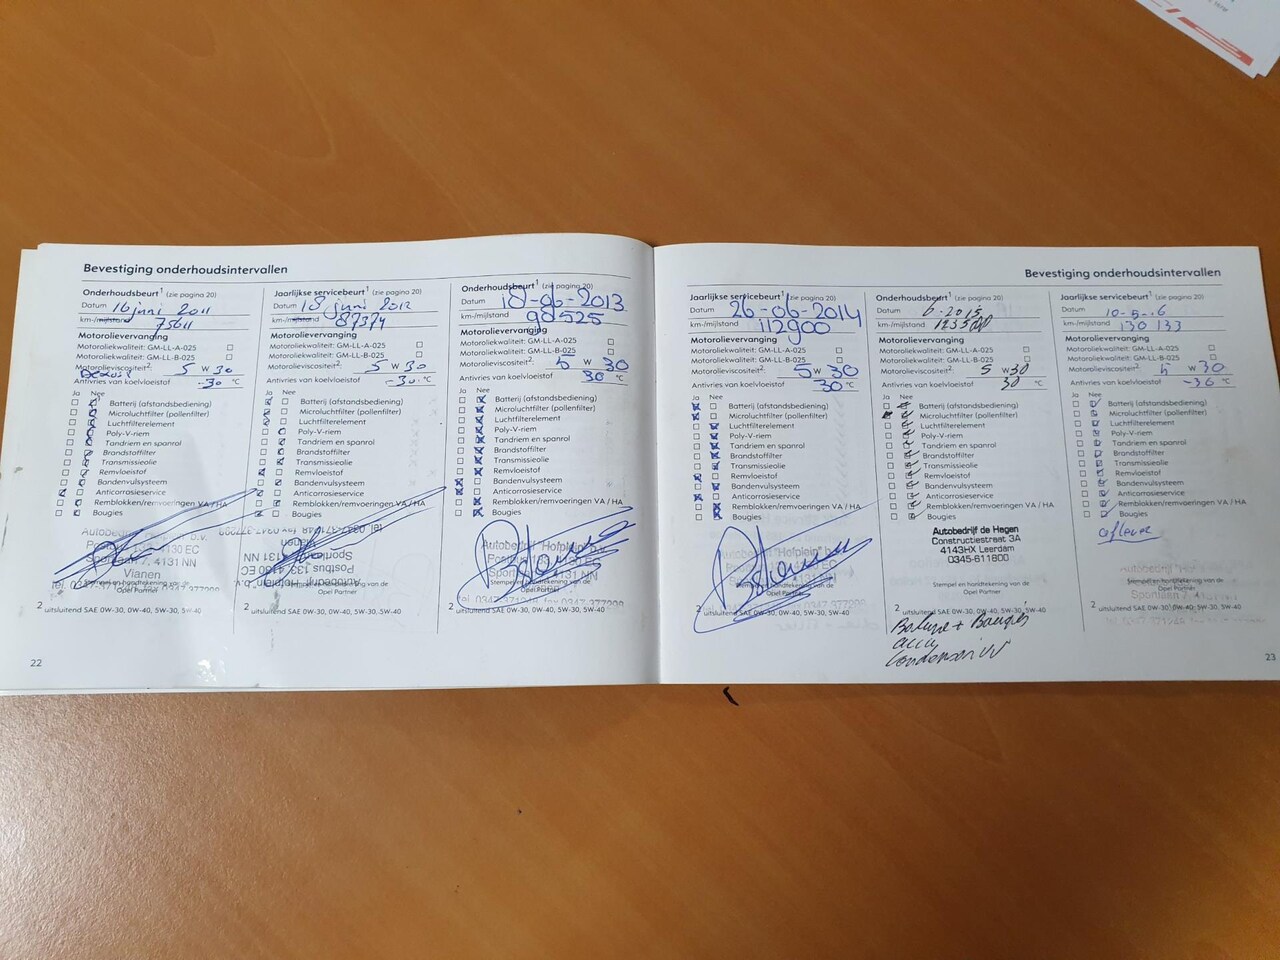 Bevestiging onderhoudsintervallen
Onderhoudsbeurt1 (zie pagina 20)
Datum 16 juni 2011
km-/mijlstand 75611
Motorolievervanging
Motoroliekwaliteit: GM-LL-A-025
Motoroliekwaliteit: GM-LL-B-025
Motorolieviscositeit2: 5 W 30
Antivries van koelvloeistof -30 °C
Ja Nee
Batterij (afstandsbediening)
Microluchtfilter (pollenfilter)
Luchtfilterelement
Poly-V-riem
Tandriem en spanrol
Brandstoffilter
Transmissieolie
Remvloeistof
Bandenvulsysteem
Anticorrosieservice
Remblokken/remvoeringen VA / HA
Bougies
Vianen
Stempel en handtekening van de
Opel Partner
2 uitsluitend SAE 0W-30, 0W-40, 5W-30, 5W-40
22
Jaarlijkse servicebeurt1 (zie pagina 20)
Datum 18 juni 2012
km-/mijlstand 87374
Motorolievervanging
Motoroliekwaliteit: GM-LL-A-025
Motoroliekwaliteit: GM-LL-B-025
Motorolieviscositeit2: 5 W 30
Antivries van koelvloeistof -30 °C
Ja Nee
Batterij (afstandsbediening)
Microluchtfilter (pollenfilter)
Luchtfilterelement
Poly-V-riem
Tandriem en spanrol
Brandstoffilter
Transmissieolie
Remvloeistof
Bandenvulsysteem
Anticorrosieservice
Remblokken/remvoeringen VA / HA
Bougies
Autobedrijf "Hofplein" b.v.
Stempel en handtekening van de
Opel Partner
2 uitsluitend SAE 0W-30, 0W-40, 5W-30, 5W-40
Onderhoudsbeurt1 (zie pagina 20)
Datum 18-06-2013
km-/mijlstand 98525
Motorolievervanging
Motoroliekwaliteit: GM-LL-A-025
Motoroliekwaliteit: GM-LL-B-025
Motorolieviscositeit2: 5 W 30
Antivries van koelvloeistof 30 °C
Ja Nee
Batterij (afstandsbediening)
Microluchtfilter (pollenfilter)
Luchtfilterelement
Poly-V-riem
Tandriem en spanrol
Brandstoffilter
Transmissieolie
Remvloeistof
Bandenvulsysteem
Anticorrosieservice
Remblokken/remvoeringen VA / HA
Bougies
Autobedrijf "Hofplein" b.v.
Stempel en handtekening van de
Opel Partner
2 uitsluitend SAE 0W-30, 0W-40, 5W-30, 5W-40
Bevestiging onderhoudsintervallen
Jaarlijkse servicebeurt1 (zie pagina 20)
Datum 26-06-2014
km-/mijlstand 112900
Motorolievervanging
Motoroliekwaliteit: GM-LL-A-025
Motoroliekwaliteit: GM-LL-B-025
Motorolieviscositeit2: 5 W 30
Antivries van koelvloeistof 30 °C
Ja Nee
Batterij (afstandsbediening)
Microluchtfilter (pollenfilter)
Luchtfilterelement
Poly-V-riem
Tandriem en spanrol
Brandstoffilter
Transmissieolie
Remvloeistof
Bandenvulsysteem
Anticorrosieservice
Remblokken/remvoeringen VA / HA
Bougies
Autobedrijf "Hofplein"
Stempel en handtekening van de
Opel Partner
2 uitsluitend SAE 0W-30, 0W-40, 5W-30, 5W-40
Onderhoudsbeurt1 (zie pagina 20)
Datum
km-/mijlstand
Motorolievervanging
Motoroliekwaliteit: GM-LL-A-025
Motoroliekwaliteit: GM-LL-B-025
Motorolieviscositeit2: 5 W 30
Antivries van koelvloeistof 30 °C
Ja Nee
Batterij (afstandsbediening)
Microluchtfilter (pollenfilter)
Luchtfilterelement
Poly-V-riem
Tandriem en spanrol
Brandstoffilter
Transmissieolie
Remvloeistof
Bandenvulsysteem
Anticorrosieservice
Remblokken/remvoeringen VA / HA
Bougies
Autobedrijf de Hagen
Constructiestraat 3A
4143HX Leerdam
0345-611800
Stempel en handtekening van de
Opel Partner
2 uitsluitend SAE 0W-30, 0W-40, 5W-30, 5W-40
+ Bougies
accu
Jaarlijkse servicebeurt1 (zie pagina 20)
Datum
km-/mijlstand 130 133
Motorolievervanging
Motoroliekwaliteit: GM-LL-A-025
Motoroliekwaliteit: GM-LL-B-025
Motorolieviscositeit2: 5 W 30
Antivries van koelvloeistof -36 °C
Ja Nee
Batterij (afstandsbediening)
Microluchtfilter (pollenfilter)
Luchtfilterelement
Poly-V-riem
Tandriem en spanrol
Brandstoffilter
Transmissieolie
Remvloeistof
Bandenvulsysteem
Anticorrosieservice
Remblokken/remvoeringen VA / HA
Bougies
Stempel en handtekening van de
Opel Partner
2 uitsluitend SAE 0W-30, 0W-40, 5W-30, 5W-40
23